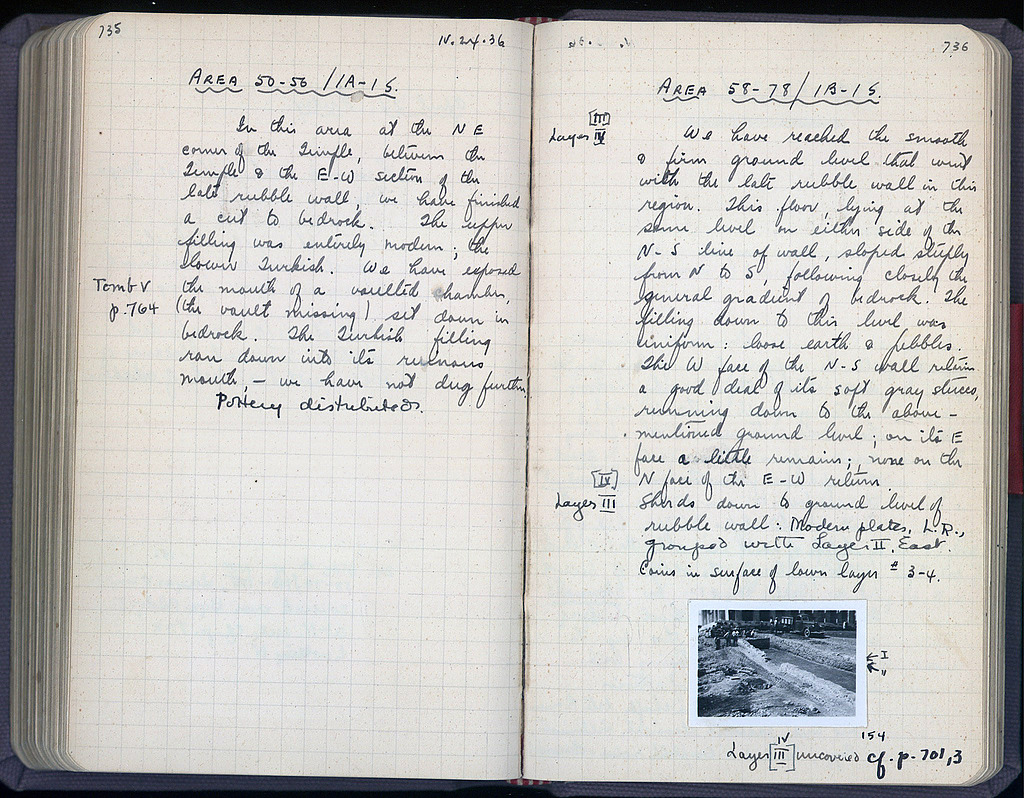 735
IV.24.36
AREA 50-56 / IA-15.
In this area at the NE
corner of the Temple, between the
Temple & the E-W section of the
late rubble wall, we have finished
a cut to bedrock. The upper
filling was entirely modern; the
lower Turkish. We have exposed
Tomb V
p.764
the mouth of a vaulted chamber,
(the vault missing) set down in
bedrock. The Turkish filling
ran down into its ruinous
mouth, – we have not dug further.
Pottery distributed.
736
AREA 58-78 / IB-15.
[III]
Layer IV
We have reached the smooth
& firm ground level that went
with the late rubble wall in this
region. This floor, lying at the
same level on either side of the
N-S line of wall, sloped steeply
from N to S, following closely the
general gradient of bedrock. The
filling down to this level was
uniform: loose earth & pebbles.
The W face of the N-S wall retains
a good deal of its soft gray stucco,
running down to the above-
mentioned ground level; on its E
face a little remains; none on the
N face of the E-W return.
[IV]
Layer III
Sherds down to ground level of
rubble wall: Modern plates, L.R.,
grouped with Layer II, East.
Coins in surface of lower layer # 3-4.
← I
← "
Layer [III] IV uncovered
154
cf. p. 701,3